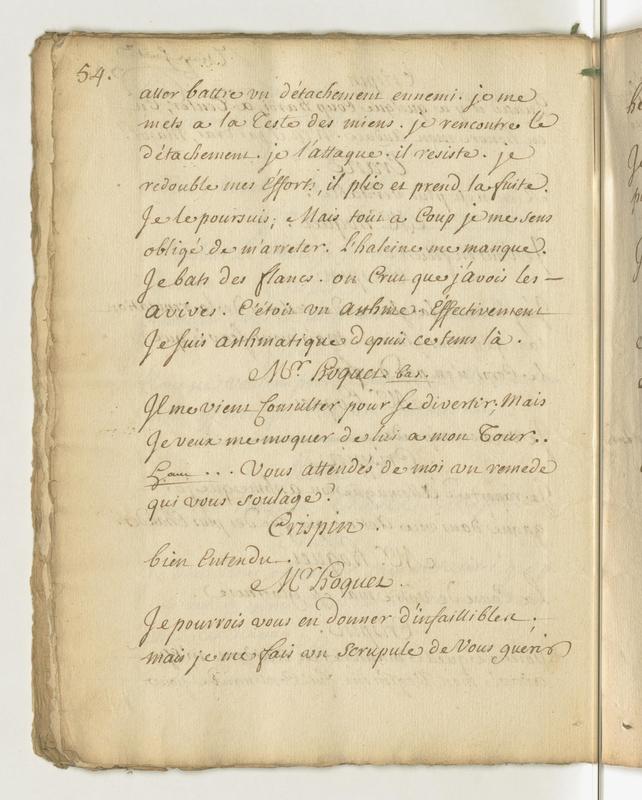 54.
aller battre un détachement ennemi. je me
mets a la Teste des miens. je rencontre le
détachement. je l'attaque. il resiste. je
redouble mes Efforts, il plie et prend la fuite.
Je le poursuis; Mais tout a Coup je me sens
obligé de m'arreter. L'haleine me manque.
Je bats des flancs. on Crut que j'avois les-
avives. C'étoit un Asthme. Effectivement
Je suis asthmatique depuis ce tems là.
Mr. Roquet. bas.
Il me vient Consulter pour se divertir; Mais
Je veux me moquer de lui a mon Tour..
haut ... Vous attendés de moi un remede
qui vous soulage?
Crispin.
bien Entendu.
Mr. Roquet.
Je pourrois vous en donner d'infaillibles;
mais je me fais un Scrupule de Vous querir